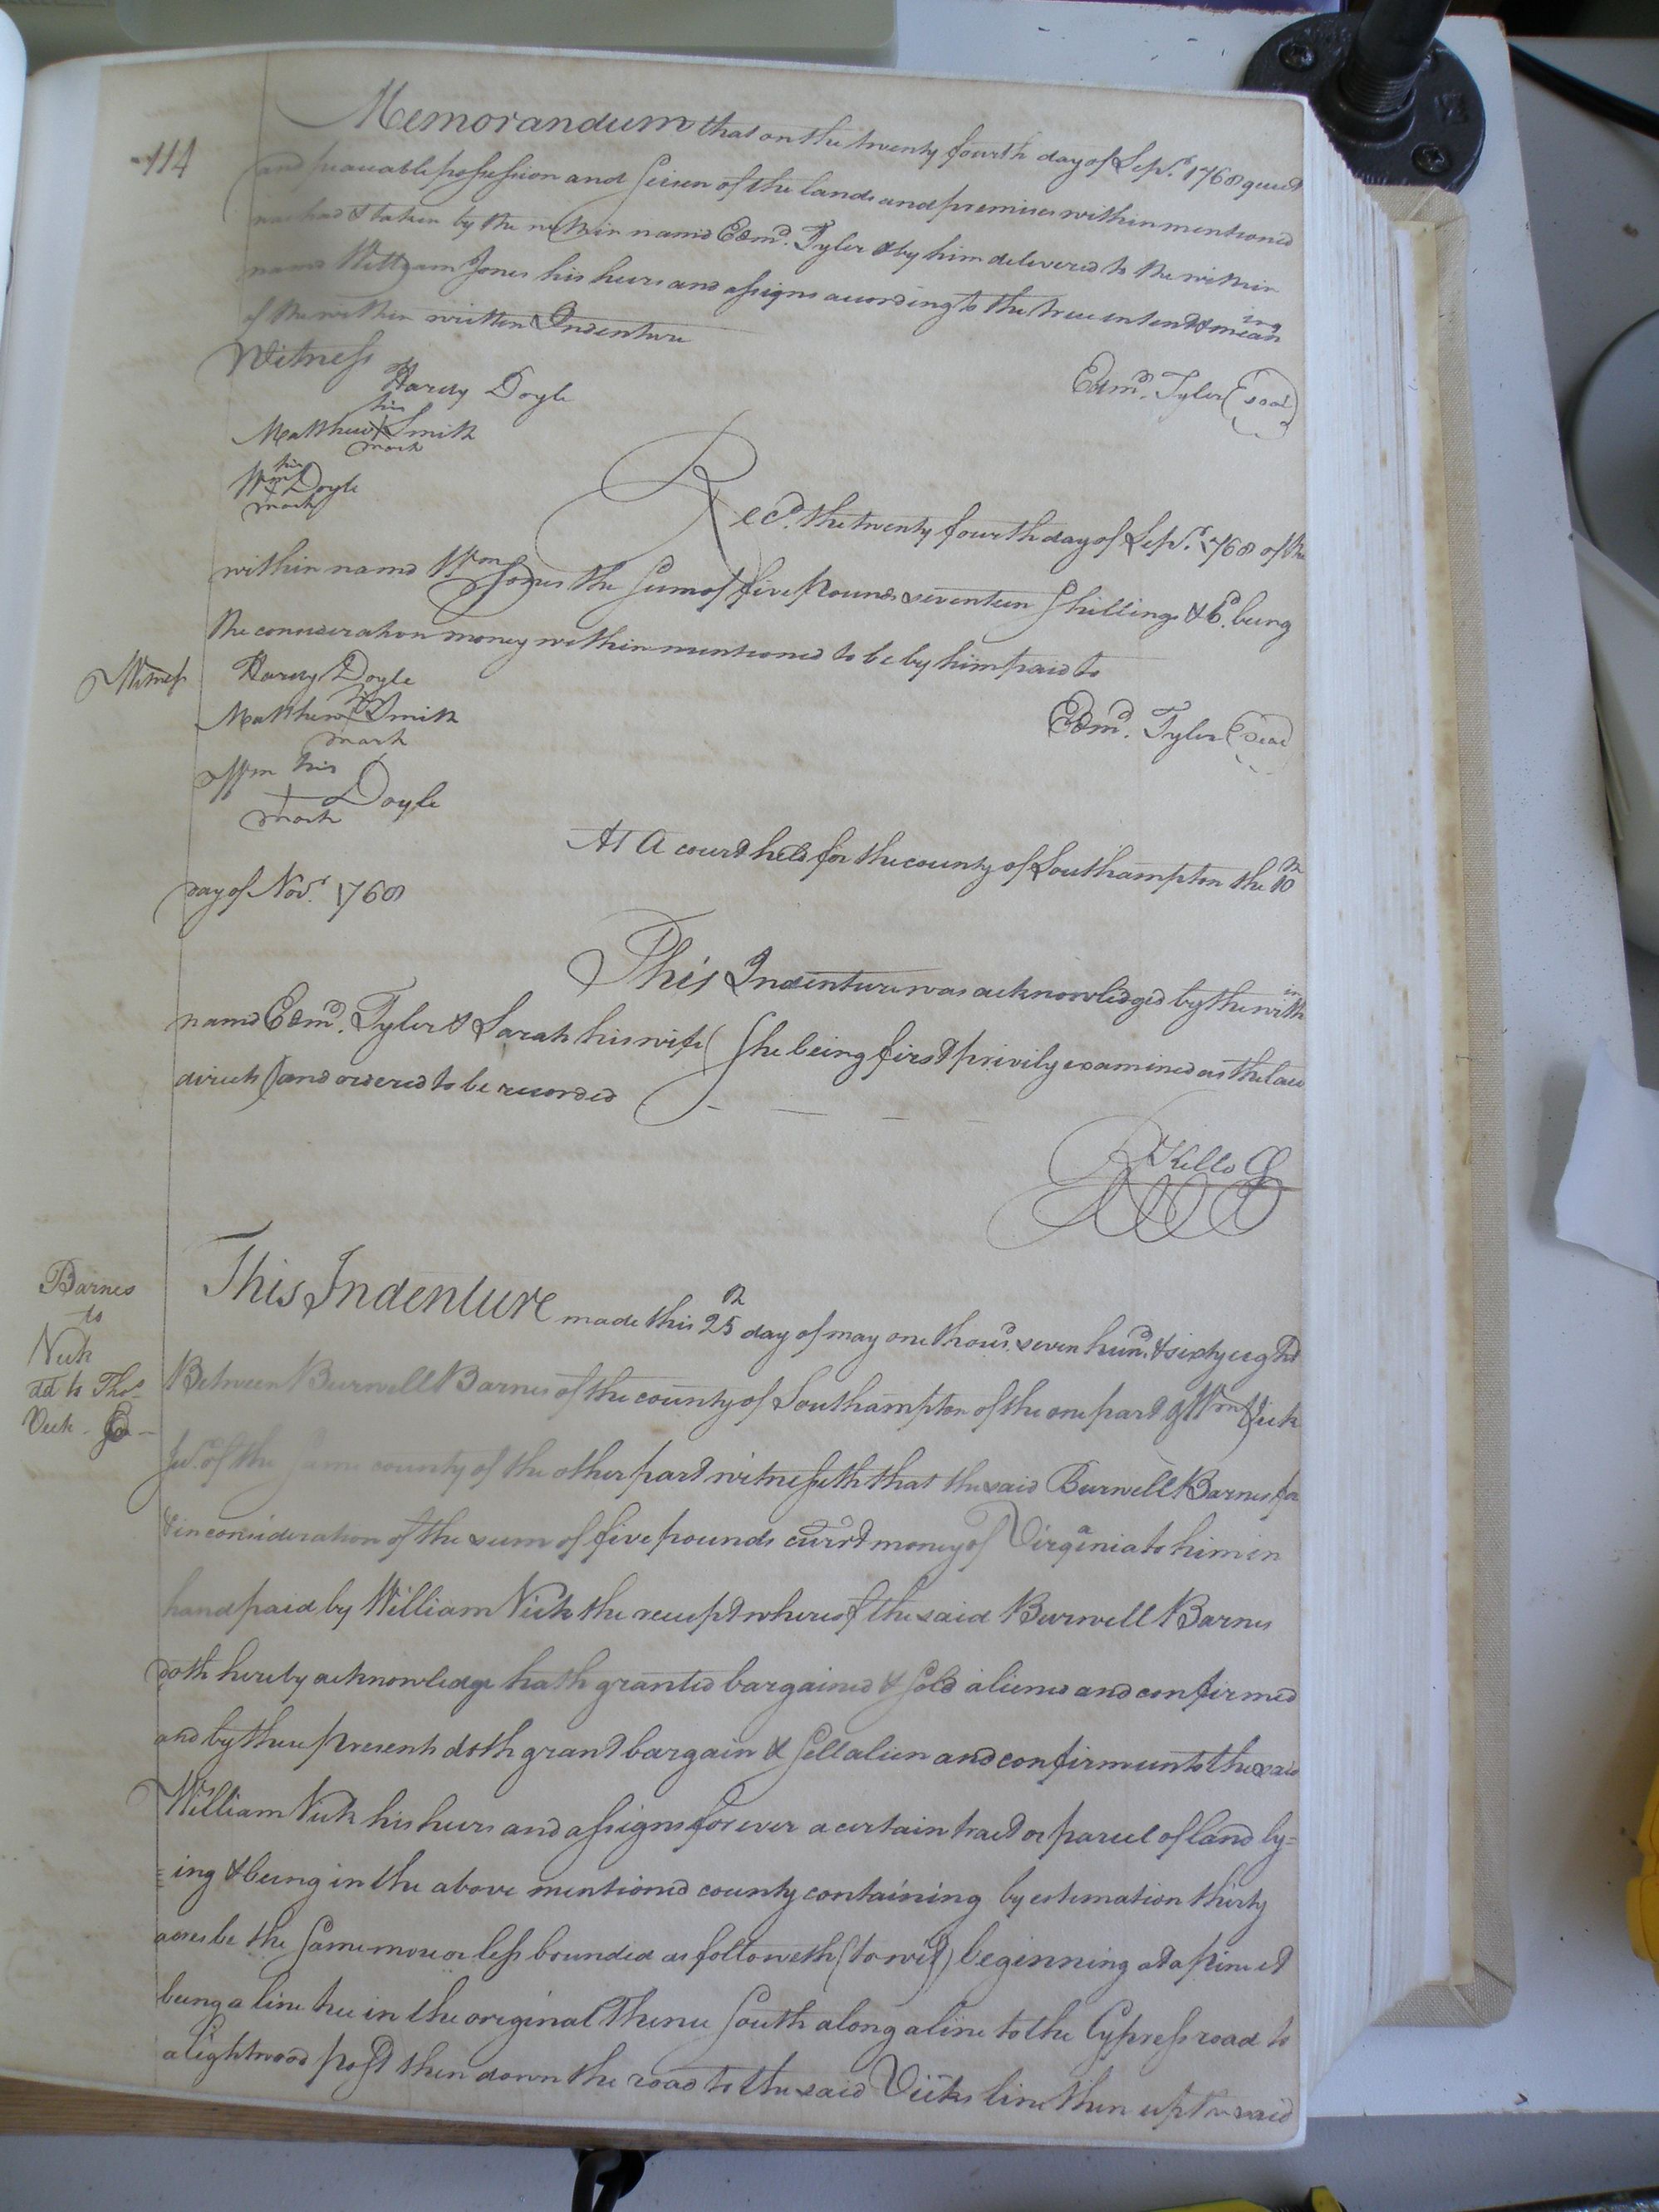 114
Memorandum that on the twenty fourth day of Sepr. 1768 quiet
and peaceable possession and Seisen of the lands and premises within mentioned
was had & taken by the within namd Edmd. Tyler & by him delivered to the within
namd William Jones his heirs and assigns according to the true intent & mean
ing
of the within written Indenture
Witness
Hardy Doyle
Edmd. Tyler (seal)
his
Matthew X Smith
mark
his
Wm + Doyle
mark
Recd. the twenty fourth day of Sepr. 1768 of the
within namd Wm Jones the Sum of five Pounds seventeen Shillings & 6d. being
the consideration money within mentioned to be by him paid to
Witness
Hardy Doyle
his
Matthew X Smith
mark
Edmd. Tyler (seal)
Wm his
+ Doyle
mark
At A court held for the county of Southampton the 10th
day of Novr. 1768
This Indenture was acknowledged by the with
in
namd Edmd. Tyler & Sarah his wife (She being first privily examined as the law
directs) and ordered to be recorded
R Kello C
Barnes
to
Vick
dd to Thos
Vick
This Indenture made this 25th day of may one thousd. seven hund. & sixty eight
Between Burwell Barnes of the county of Southampton of the one part & Wm Vick
Jur. of the Same county of the other part witnesseth that the said Burwell Barnes for
& in consideration of the sum of five pounds currt money of Virginia to him in
hand paid by William Vick the receipt whereof the said Burwell Barnes
doth hereby acknowledge hath granted bargained & Sold aliened and confirmed
and by these presents doth grant bargain & Sell alien and confirm unto the said
William Vick his heirs and assigns forever a certain tract or parcel of land ly=
=ing & being in the above mentioned county containing by estemation thirty
acres be the Same more or less bounded as followeth (to wit) beginning at a pine it
being a line tree in the original Thence South along a line to the Cypress road to
a lightwood post then down the road to the said Vicks line then up the said